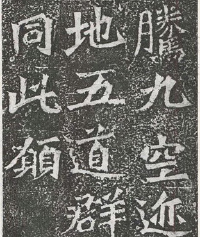 騰九空迹
地五道群
同此願